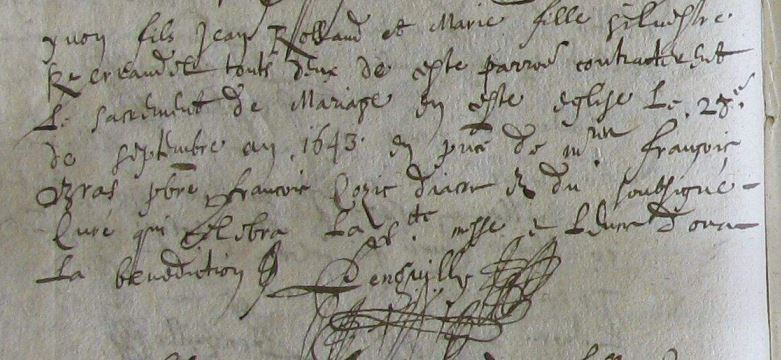 yvon fils Jean Rolland et Marie fille Silvestre
touts deux de ceste parroē contracterent
Le sacrement de Mariage en ceste eglise Le 28e
de septembre an 1643 en pnce de mre françois
Bras pbre françois Cozic diacre et du soubsigné
Curé qui celebra La ste messe et Leur dona
La benediction